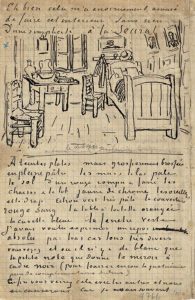 Eh bien cela m'a enormément amusé
de faire cet interieur sans rien
D'une simplicité à la Seurat
A teintes plates mais grossierement brossées
en pleine pâte les murs lilas pale
le sol d'un rouge rompu & fané les
chaises & le lit jaune de chrome les oreillers
et le drap citron vert très pale la couverture
rouge sang la table à toilette orangée
la cuvette bleue la fenêtre verte
J'aurais voulu exprimer un repos
absolu par tous ces tons très divers
vous voyez et où il n'y a de blanc que
la petite note que donne le miroir à
cadre noir (pour fourrer encore la quatrième
paire de
Enfin vous verrez cela avec les autres et nous
en causerons car je ne sais souvent